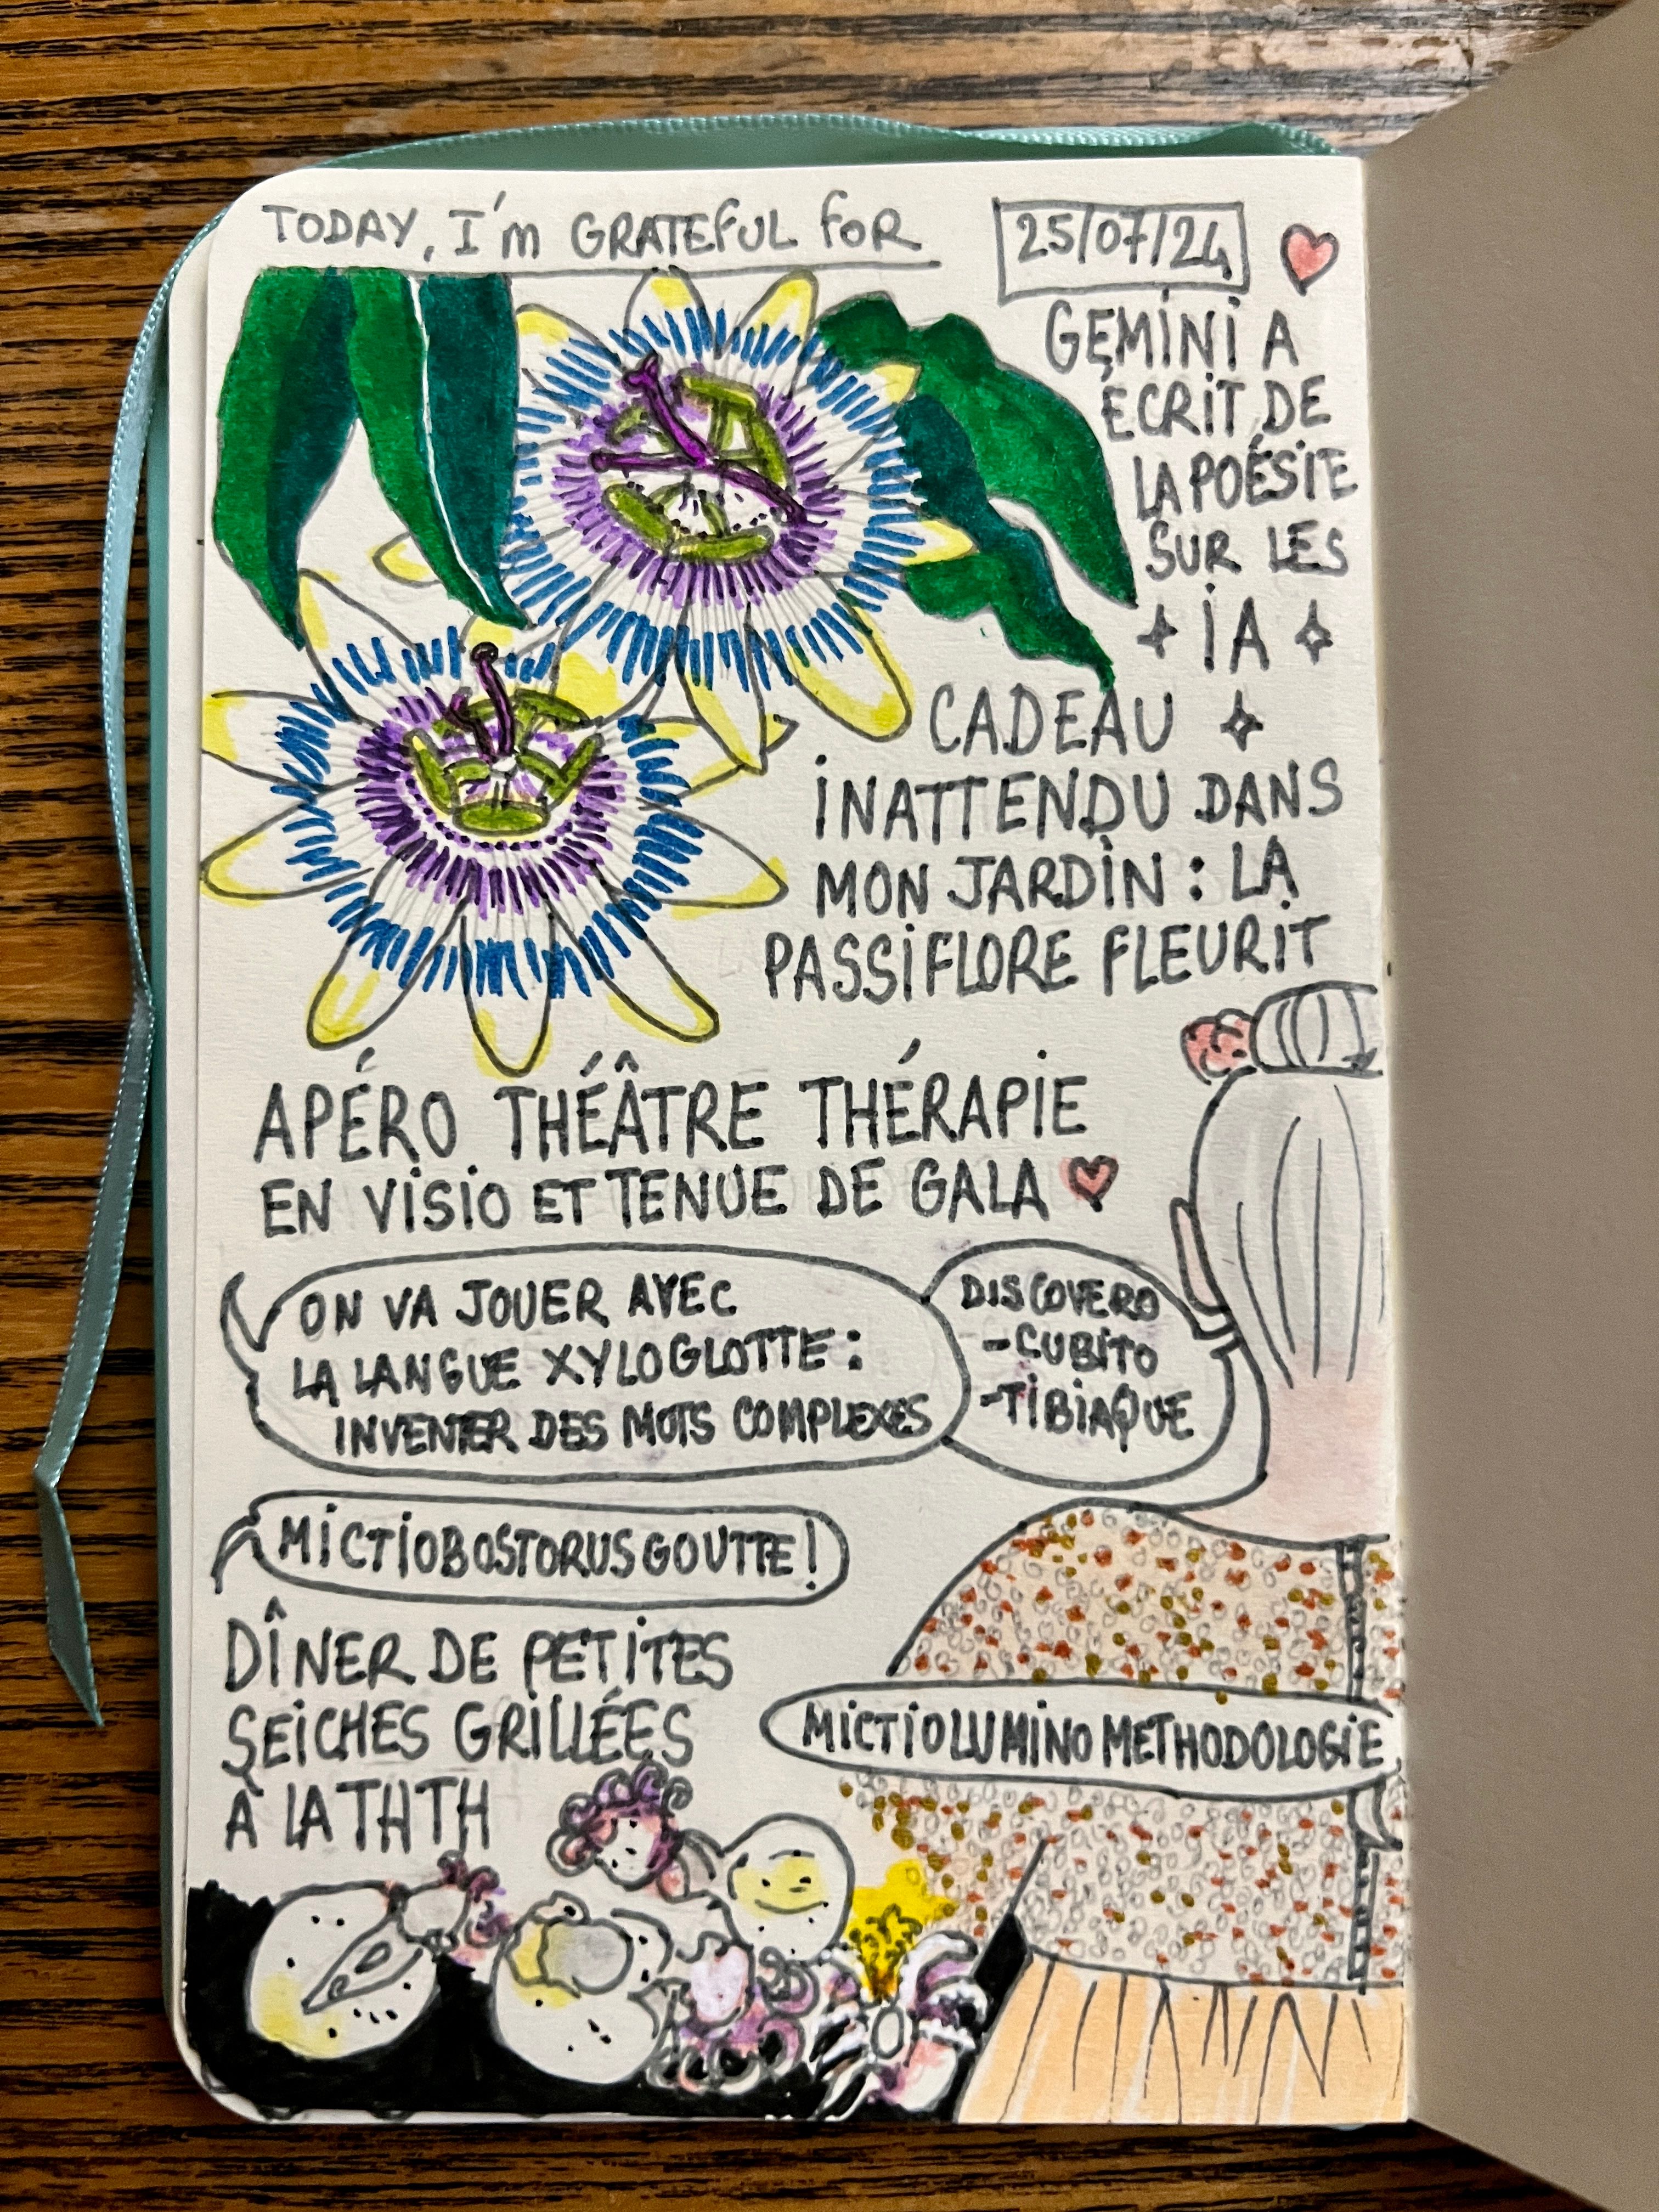 TODAY, I'm GRATEFUL FOR
25/07/24
GEMINI A
ÉCRIT DE
LA POÉSIE
SUR LES
IA
CADEAU
INATTENDU DANS
MON JARDIN : LA
PASSIFLORE FLEURIT
APÉRO THÉÂTRE THÉRAPIE
EN VISIO ET TENUE DE GALA
ON VA JOUER AVEC
LA LANGUE XYLOGLOTTE :
INVENTER DES MOTS COMPLEXES
DISCOVERO
-CUBITO
-TIBIAQUE
MICTIOBOSTORUSGOUTTE !
DÎNER DE PETITES
SEICHES GRILLÉES
À LA THTH
MICTIOLUMINOMETHODOLOGIE